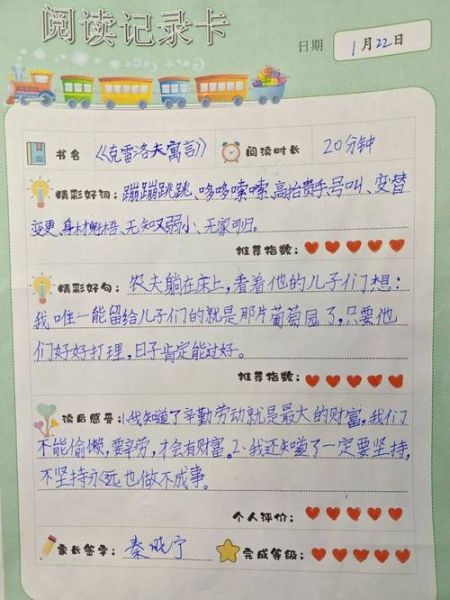 阅读记录卡
日期 1月22日
书名 《克雷洛夫寓言》 阅读时长 20分钟
精彩好词:蹦蹦跳跳、哆哆嗦嗦、高抬贵手、号叫、变替
变更、身材魁梧、无知又弱小、无家可归。
推荐指数:
精彩好句:农夫躺在床上,看着他的儿子们想:
我唯一能留给儿子们的就是那片葡萄园了,只要他
们好好打理,日子肯定能过好。
推荐指数:
读后感受:1、我知道了辛勤劳动就是最大的财富,我们
不能偷懒,要辛劳,才会有财富。2、我还知道了一定要坚持,
不坚持永远也做不成事。
个人评价:
家长签字:秦晓宁 完成等级: